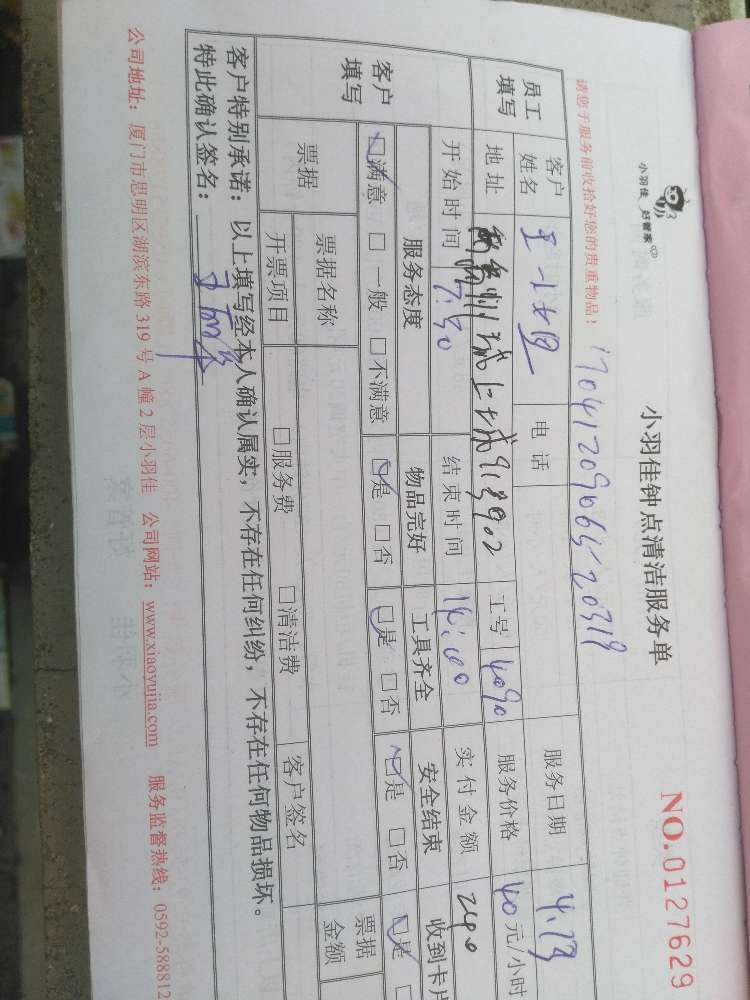 小羽佳 好管家
小羽佳钟点清洁服务单
NO.0127629
请您于服务前收拾好您的贵重物品！
1704120906520319
员工填写 客户姓名 王小姐 电话 服务日期
地址 工号 4090 服务价格 40 元/小时
开始时间 7:30 结束时间 14:00 实付金额 240
客户填写 服务态度 物品完好 工具齐全 安全结束 收到卡片
☑满意 □一般 □不满意 ☑是 □否 ☑是 □否 ☑是 □否 ☑是
票据 票据名称 票据金额
开票项目 □服务费 □清洁费 客户签名
客户特别承诺：以上填写经本人确认属实，不存在任何纠纷，不存在任何物品损坏。
特此确认签名：
公司地址：厦门市思明区湖滨东路 319 号 A 幢 2 层小羽佳 公司网站：www.xiaoyujia.com 服务监督热线：0592-588812